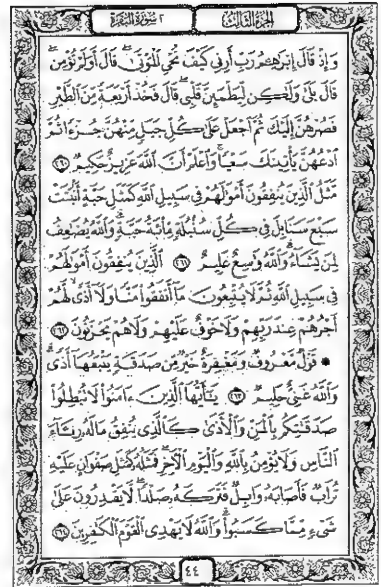 الجزء الثالث
٢ سورة البقرة
وَإِذْ قَالَ إِبْرَاهِيمُ رَبِّ أَرِنِي كَيْفَ تُحْيِي الْمَوْتَىٰ قَالَ أَوَلَمْ تُؤْمِن
قَالَ بَلَىٰ وَلَٰكِن لِّيَطْمَئِنَّ قَلْبِي قَالَ فَخُذْ أَرْبَعَةً مِّنَ الطَّيْرِ
فَصُرْهُنَّ إِلَيْكَ ثُمَّ اجْعَلْ عَلَىٰ كُلِّ جَبَلٍ مِّنْهُنَّ جُزْءًا ثُمَّ
ادْعُهُنَّ يَأْتِينَكَ سَعْيًا وَاعْلَمْ أَنَّ اللَّهَ عَزِيزٌ حَكِيمٌ ٢٦٠
مَّثَلُ الَّذِينَ يُنفِقُونَ أَمْوَالَهُمْ فِي سَبِيلِ اللَّهِ كَمَثَلِ حَبَّةٍ أَنبَتَتْ
سَبْعَ سَنَابِلَ فِي كُلِّ سُنبُلَةٍ مِّائَةُ حَبَّةٍ وَاللَّهُ يُضَاعِفُ
لِمَن يَشَاءُ وَاللَّهُ وَاسِعٌ عَلِيمٌ ٢٦١ الَّذِينَ يُنفِقُونَ أَمْوَالَهُمْ
فِي سَبِيلِ اللَّهِ ثُمَّ لَا يُتْبِعُونَ مَا أَنفَقُوا مَنًّا وَلَا أَذًى لَّهُمْ
أَجْرُهُمْ عِندَ رَبِّهِمْ وَلَا خَوْفٌ عَلَيْهِمْ وَلَا هُمْ يَحْزَنُونَ ٢٦٢
قَوْلٌ مَّعْرُوفٌ وَمَغْفِرَةٌ خَيْرٌ مِّن صَدَقَةٍ يَتْبَعُهَا أَذًى
وَاللَّهُ غَنِيٌّ حَلِيمٌ ٢٦٣ يَا أَيُّهَا الَّذِينَ آمَنُوا لَا تُبْطِلُوا
صَدَقَاتِكُم بِالْمَنِّ وَالْأَذَىٰ كَالَّذِي يُنفِقُ مَالَهُ رِئَاءَ
النَّاسِ وَلَا يُؤْمِنُ بِاللَّهِ وَالْيَوْمِ الْآخِرِ فَمَثَلُهُ كَمَثَلِ صَفْوَانٍ عَلَيْهِ
تُرَابٌ فَأَصَابَهُ وَابِلٌ فَتَرَكَهُ صَلْدًا لَّا يَقْدِرُونَ عَلَىٰ
شَيْءٍ مِّمَّا كَسَبُوا وَاللَّهُ لَا يَهْدِي الْقَوْمَ الْكَافِرِينَ ٢٦٤
٤٤